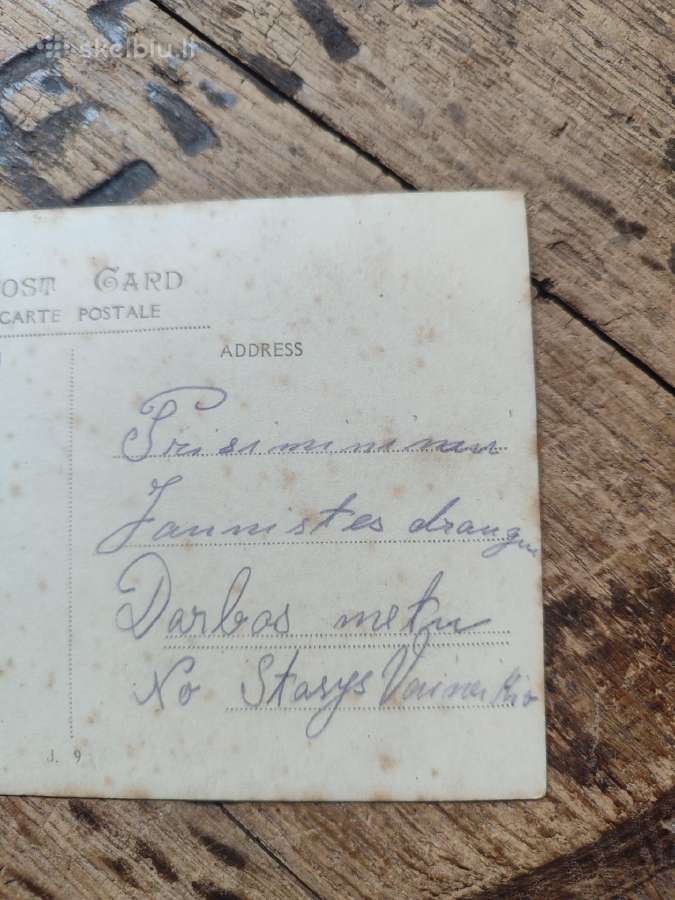 skelbiu.lt
OST CARD
CARTE POSTALE
ADDRESS
Prisiminimui
Jaunistes draugu
Darbos metu
No Stasys
J. 9